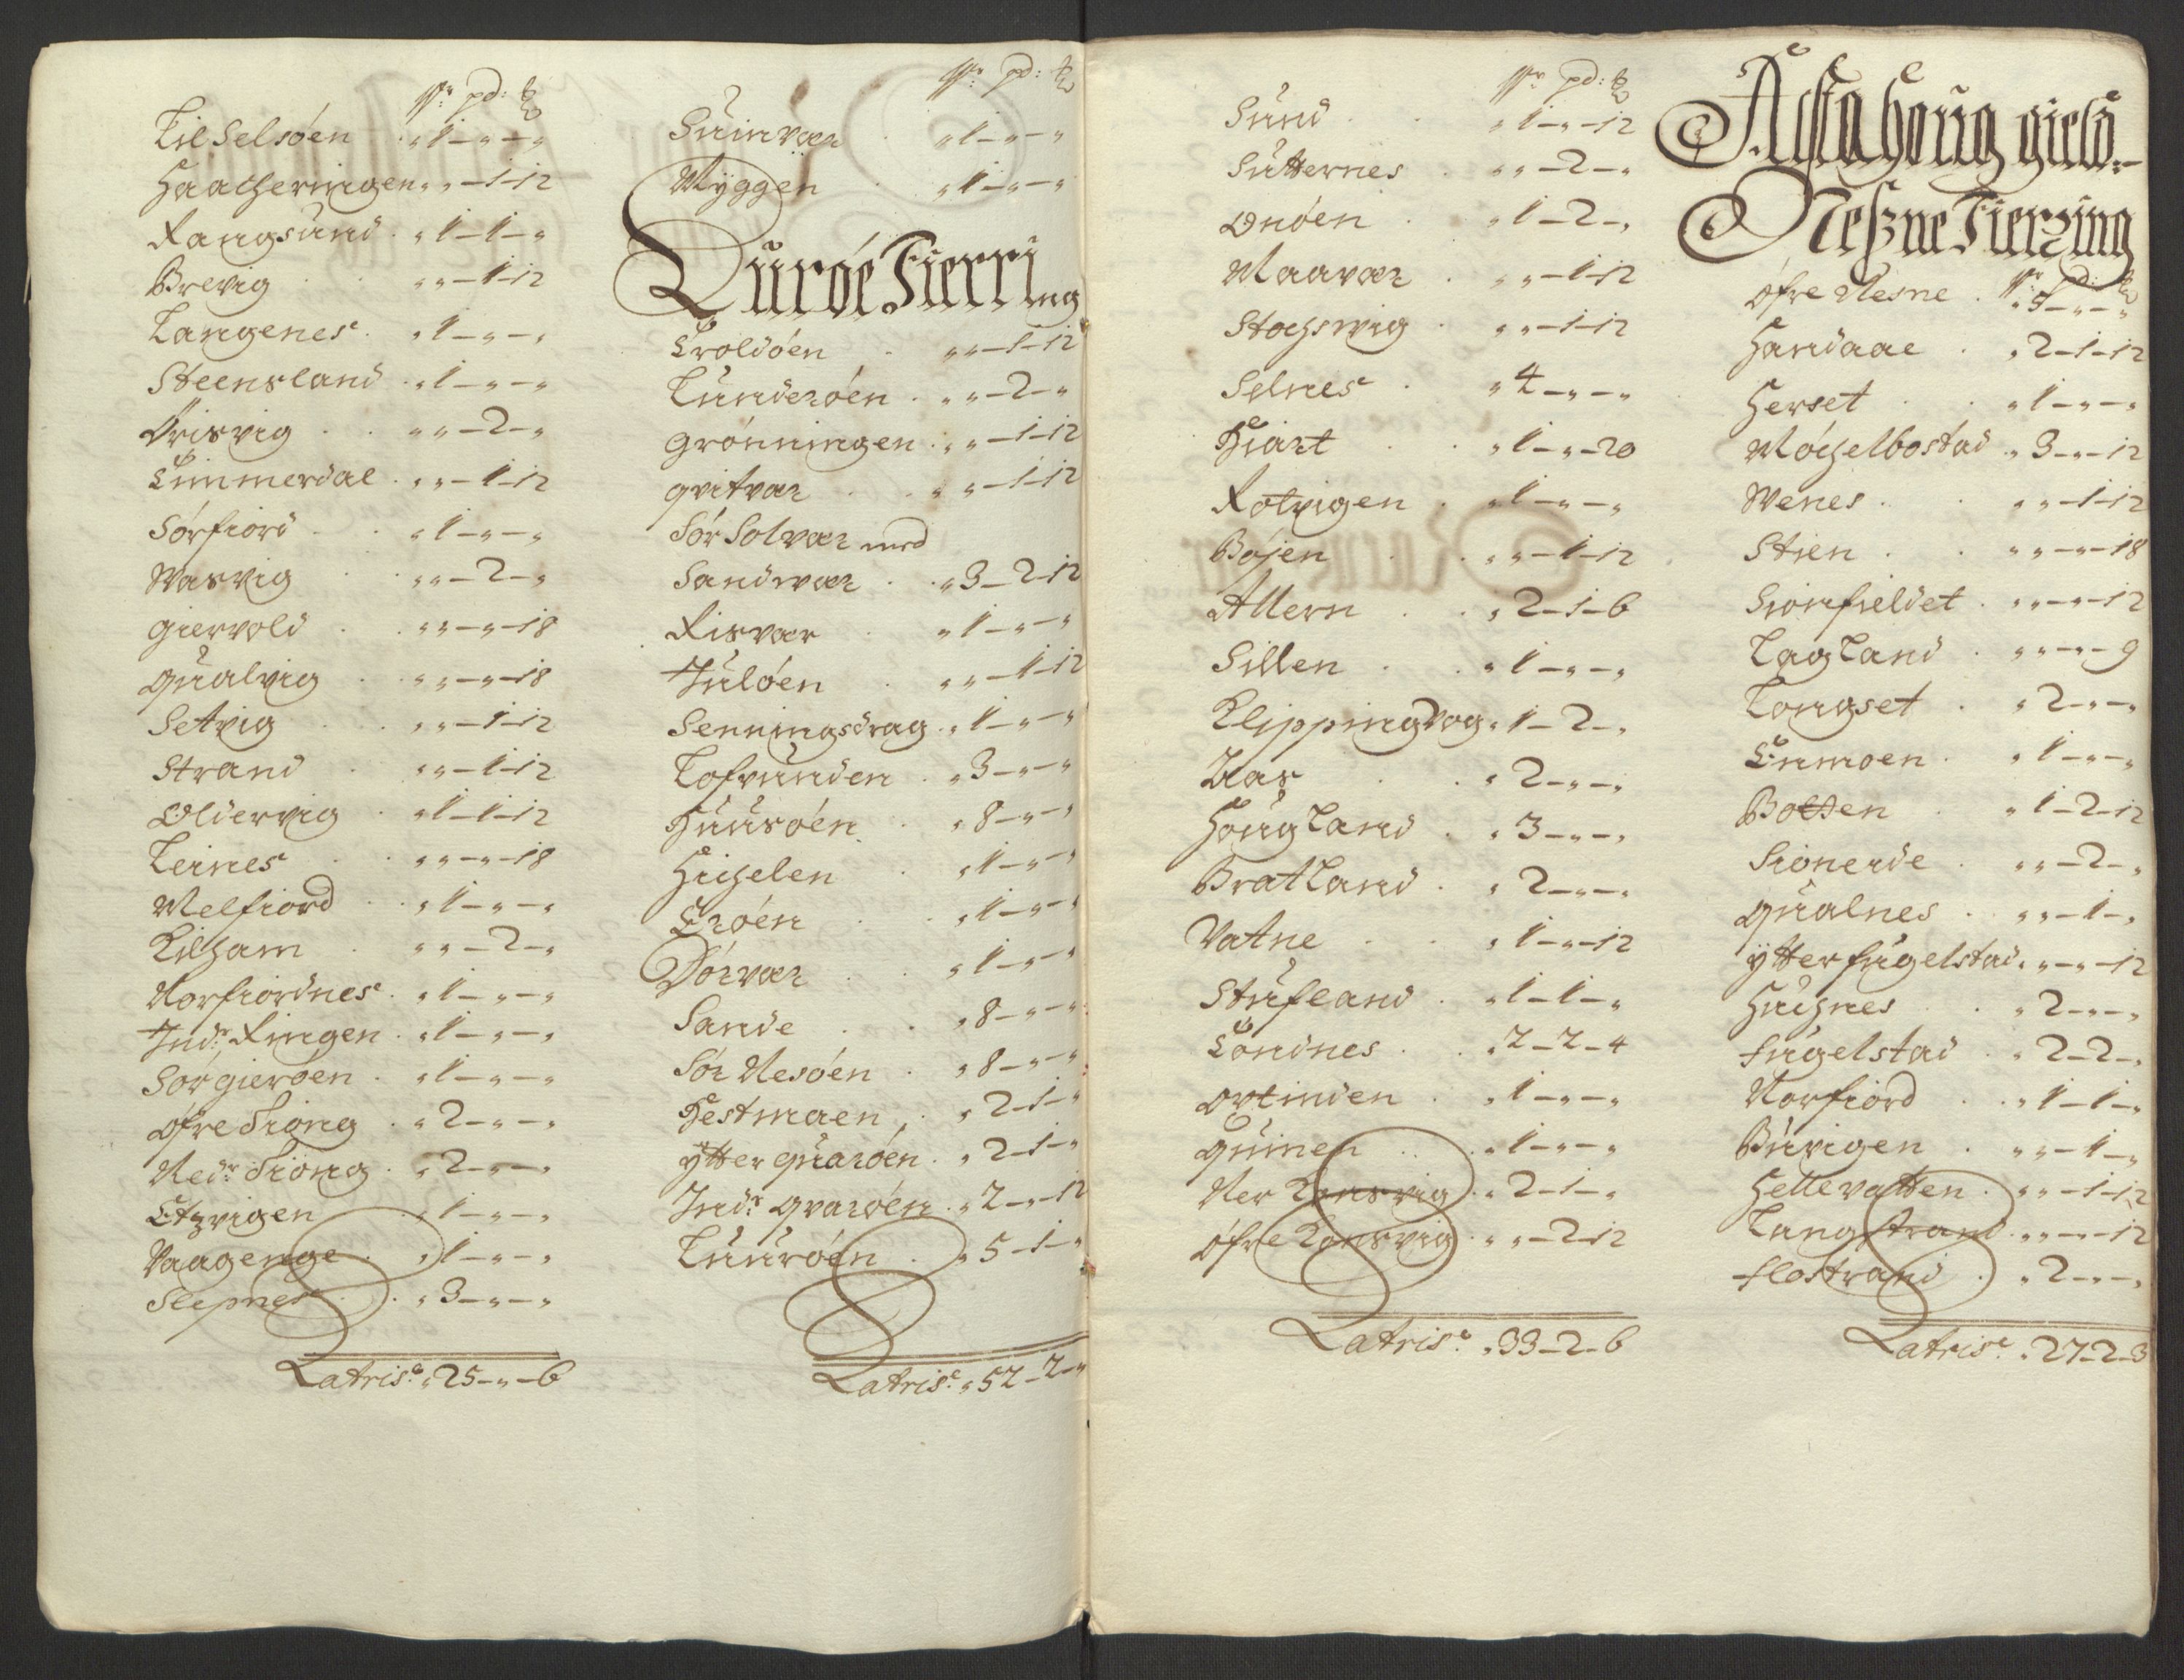 Wr: pd: ℔
Til Selsöen . „ 1 – „ – „
Haacheringen „ „ – 1-12
Rangsund . „ 1 – 1 – „
Brevig . „ „ – 1-12
Langenes . „ 1 – „ – „
Steensland . „ 1 – „ – „
Örisvig . „ „ – 2 – „
Timmerdal . „ „ – 1-12
Sörfiord . „ 1 – „ – „
Wasvig . „ „ – 2 – „
Giervold . „ „ – „ -18
Qualvig . „ „ – „ -18
Setvig . „ „ – 1-12
Strand . „ „ – 1-12
Oldervig . „ 1 – 1-12
Leines . „ „ – „ -18
Melfiord . „ 1 – „ – „
Kilham . „ „ – 2 – „
Norfiordnes . „ 1 – „ – „
Indr Ringen . „ 1 – „ – „
Sörgieröen . „ 1 – „ – „
Öfre Siong . „ 2 – „ – „
Nedr Siong . „ 2 – „ – „
Etzvigen . „ 1 – „ – „
Vaagenge . „ 1 – „ – „
Slepnes . „ 3 – „ – „
Latris: „ 25 – „ – 6
Wr: pd: ℔
Suinvær „ 1 – „ – „
Myggen . „ 1 – „ – „
Luröe Fierring
Troldöen . „ „ – 1-12
Lunderöen . „ „ – 2 – „
Grönningen . „ „ – 1-12
Qvitvær . „ „ – 1-12
Sör Solvær med
Sandvær . „ 3 – 2-12
Risvær . „ 1 – „ – „
Julöen . „ „ – 1-12
Senningsdrag . „ 1 – „ – „
Lofvunden . „ 3 – „ – „
Huusöen . „ 8 – „ – „
Hichelen . „ 1 – „ – „
Eröen . „ 1 – „ – „
Dörvær . „ 1 – „ – „
Sande . „ 8 – „ – „
Sör Nesöen . „ 8 – „ – „
Hestmaen . „ 2 – 1 – „
Ytter Quaröen . „ 2 – 1 – „
Indr Qvaröen . „ 2 – „ -12
Luuröen . „ 5 – 1 – „
Latris: „ 52 – 2 – „
Wr: pd: ℔
Sund . „ 1 – „ -12
Sutternes . „ „ – 2 – „
Onöen . „ 1 – 2 – „
Maavær . „ „ – 1-12
Stochsvig . „ „ – 1-12
Selnes . „ 4 – „ – „
Hiart . „ 1 – „ -20
Rotvigen . „ 1 – „ – „
Böjen . „ „ – 1-12
Allern . „ 2 – 1 – 6
Sillen . „ 1 – „ – „
Klippingvog . „ 1 – 2 – „
Aas . „ 2 – „ – „
Hougland . „ 3 – „ – „
Bratland . „ 2 – „ – „
Vatne . „ 1 – „ -12
Stufland . „ 1 – 1 – „
Tondnes . „ 2 – 2 – 4
Ortinden . „ 1 – „ – „
Quinen . „ 1 – „ – „
Ner Konsvig . „ 2 – 1 – „
Öfre Konsvig . „ „ – 2-12
Latris: „ 33 – 2 – 6
Alstahoug gield.
Neszne Fierring
Wr: pd: ℔
Öfre Nesne . „ 5 – „ – „
Handaal . „ 2 – 1-12
Herset . „ 1 – „ – „
Möchelbostad . „ 3 – „ -12
Wenes . „ „ – 1-12
Stien . „ „ – „ -18
Sionfieldet . „ „ – „ -12
Lagland . „ „ – „ – 9
Longset . „ 2 – „ – „
Enmoen . „ 1 – „ – „
Botten . „ 1 – 2-12
Sioneide . „ „ – 2 – „
Qualnes . „ „ – 1 – „
Ytter fugelstad . „ „ – „ -12
Huchnes . „ 2 – „ – „
Fugelstad . „ 2 – 2 – „
Norfiord . „ 1 – 1 – „
Buvigen . „ „ – 1 – „
Hellevatten . „ „ – 1-12
Langstrand . „ „ – „ -12
Flostrand . „ 2 – „ – „
Latris: „ 27 – 2 – 3